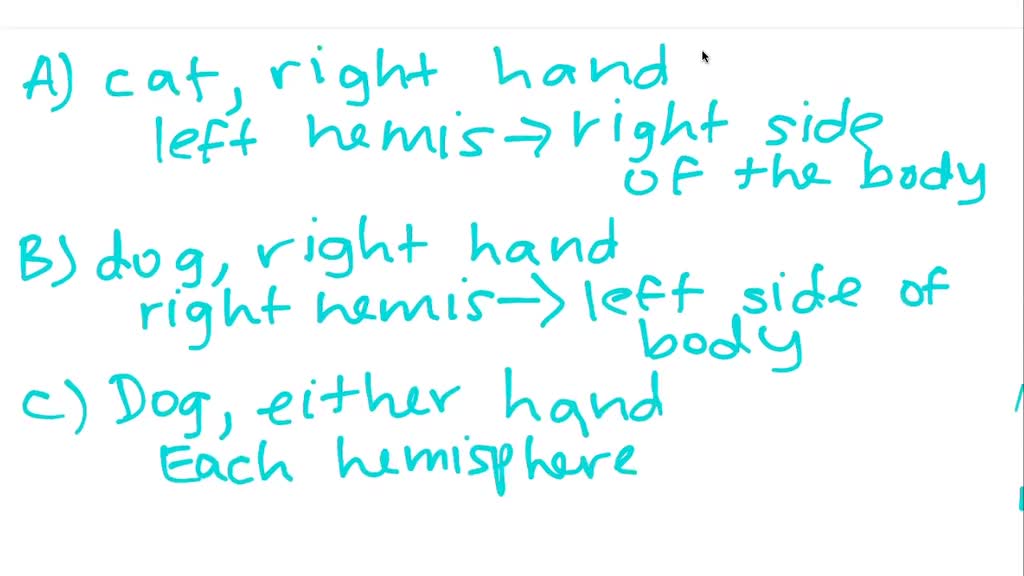 A) cat, right hand
left hemis → right side
of the body
B) dog, right hand
right hemis → left side of
body
C) Dog, either hand
Each hemisphere